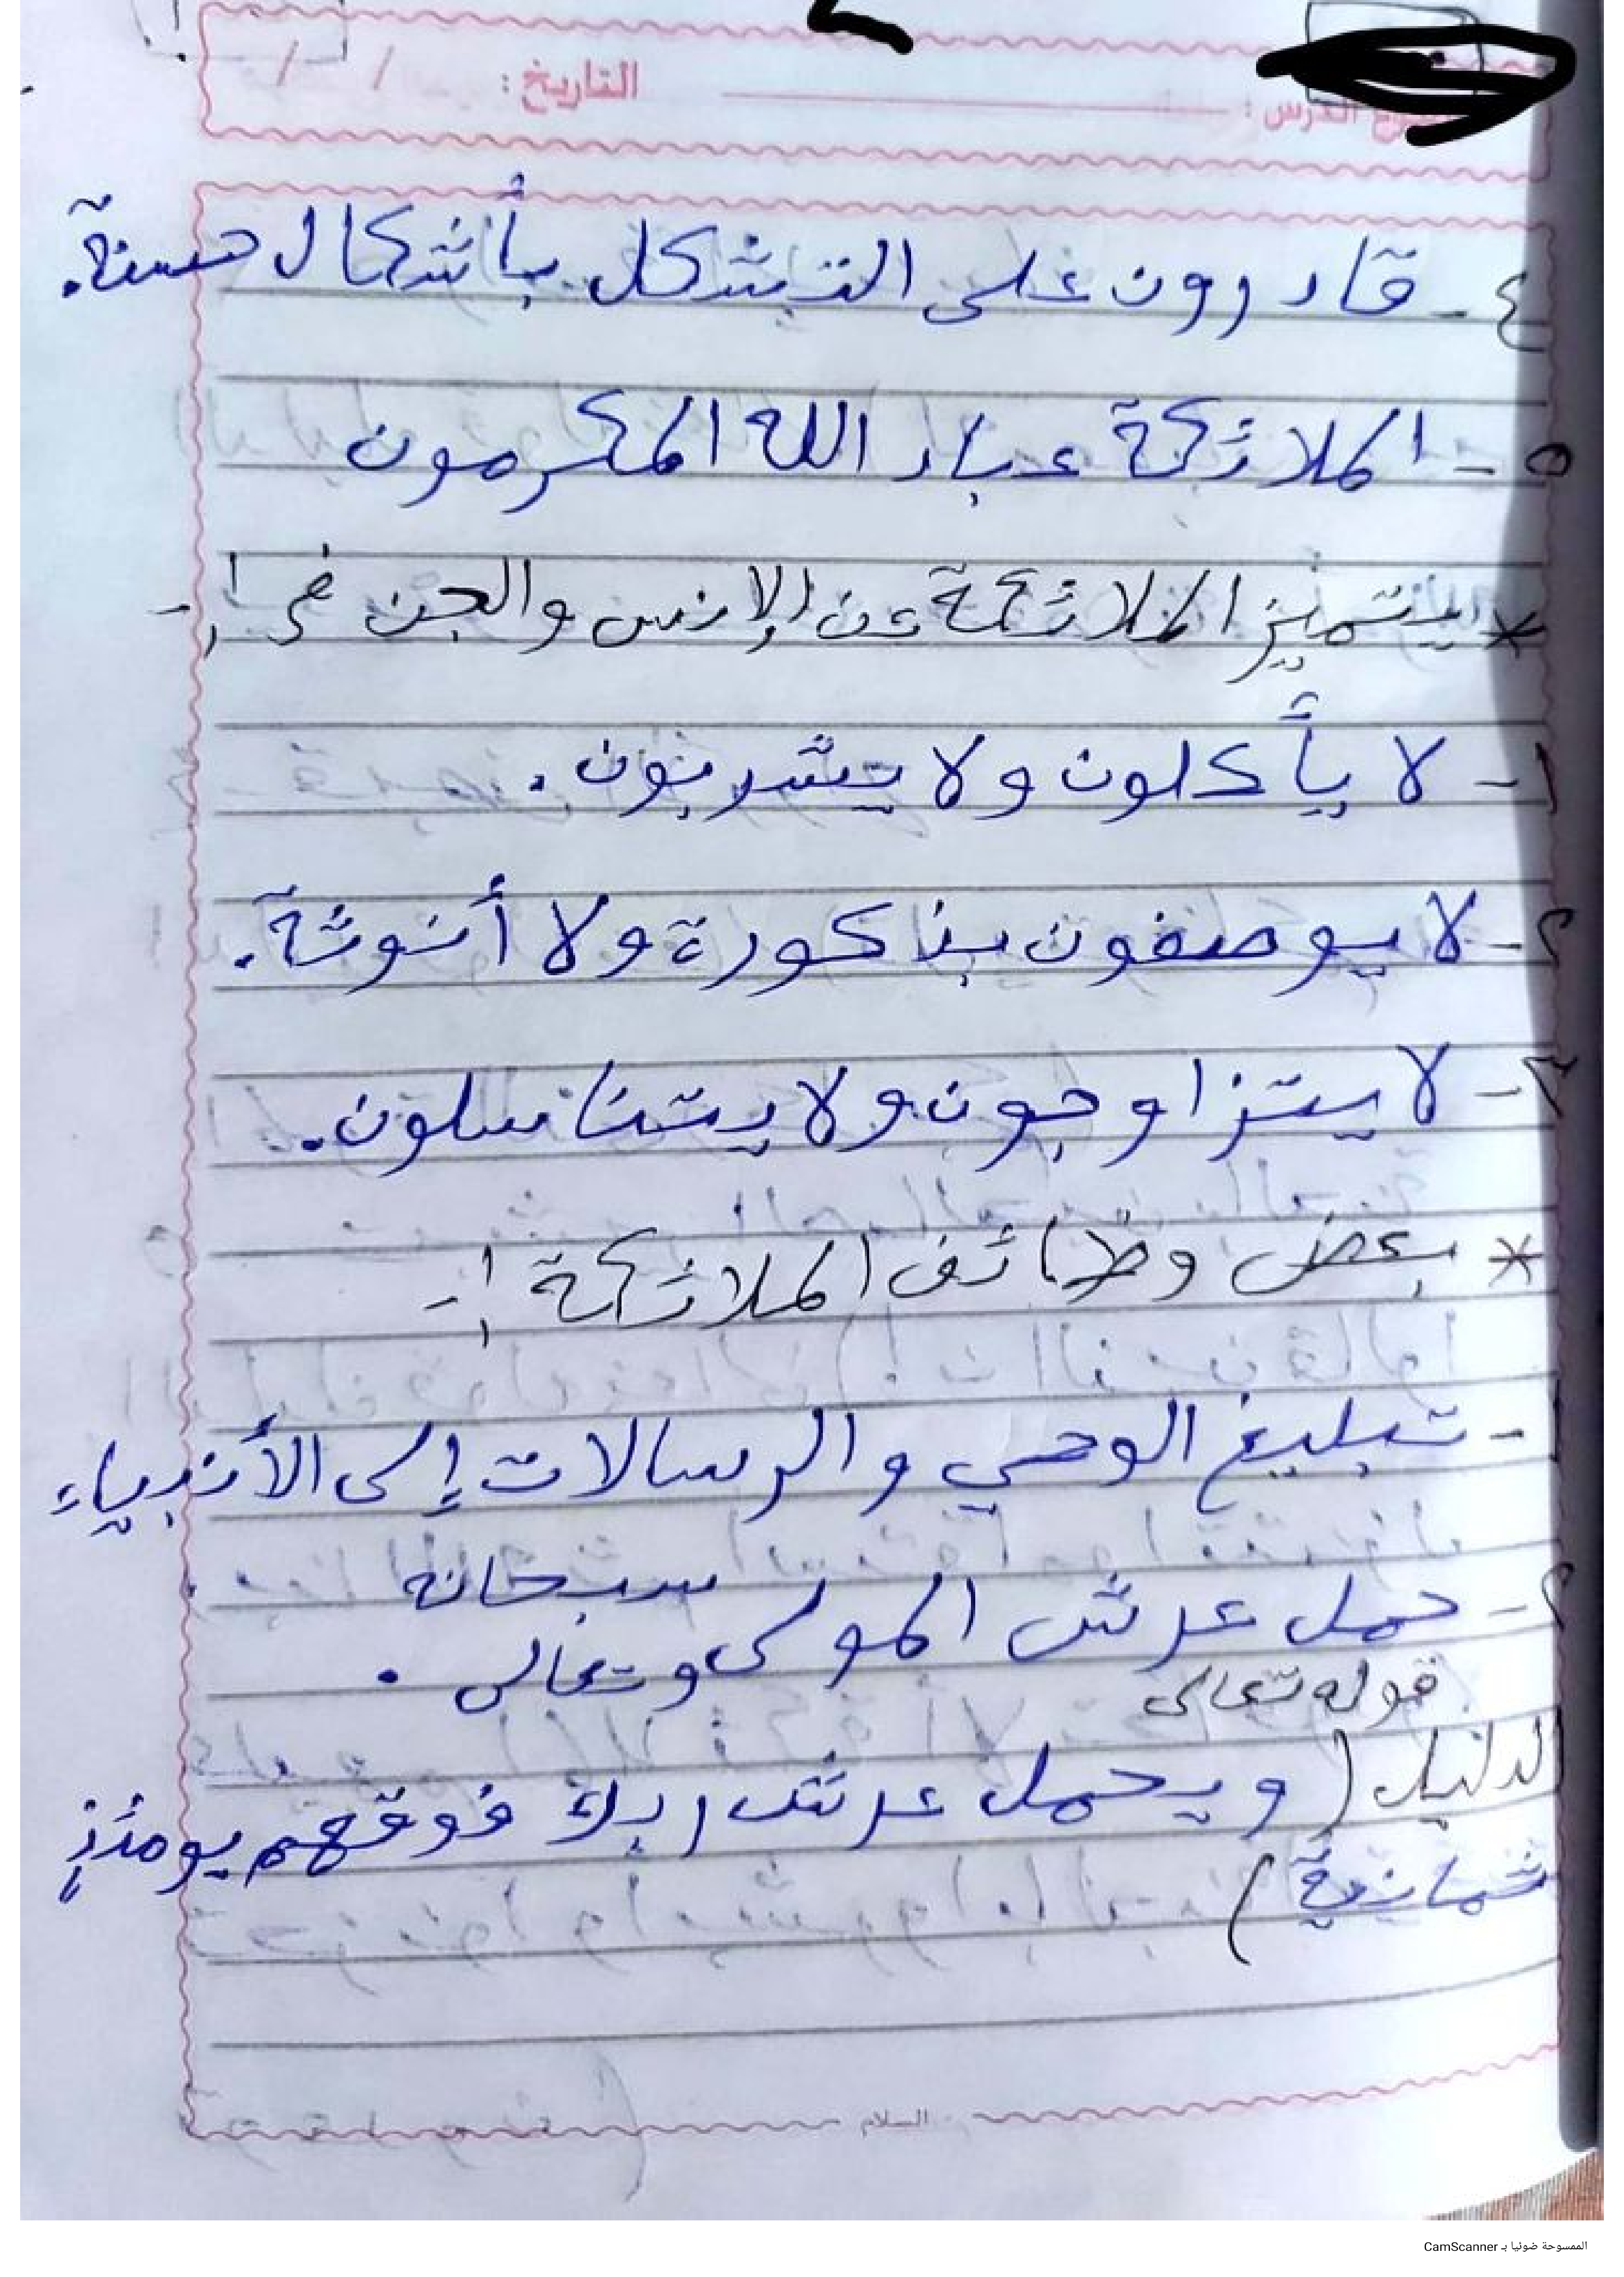 التاريخ: / /
الدرس:
٤- قادرون على التشكل بأشكال حسنة.
٥- الملائكة عباد الله المكرمون
* يتميز الملائكة عن الإنس والجن في :-
١- لا يأكلون ولا يشربون.
٢- لا يوصفون بذكورة ولا أنوثة.
٣- لا يتزاوجون ولا يتناسلون.
* بعض وظائف الملائكة :-
١- تبليغ الوحي والرسالات إلى الأنبياء
٢- حمل عرش المولى سبحانه وتعالى.
قوله تعالى
الدليل (ويحمل عرش ربك فوقهم يومئذٍ
ثمانية)
السلام
الممسوحة ضوئيا بـ CamScanner